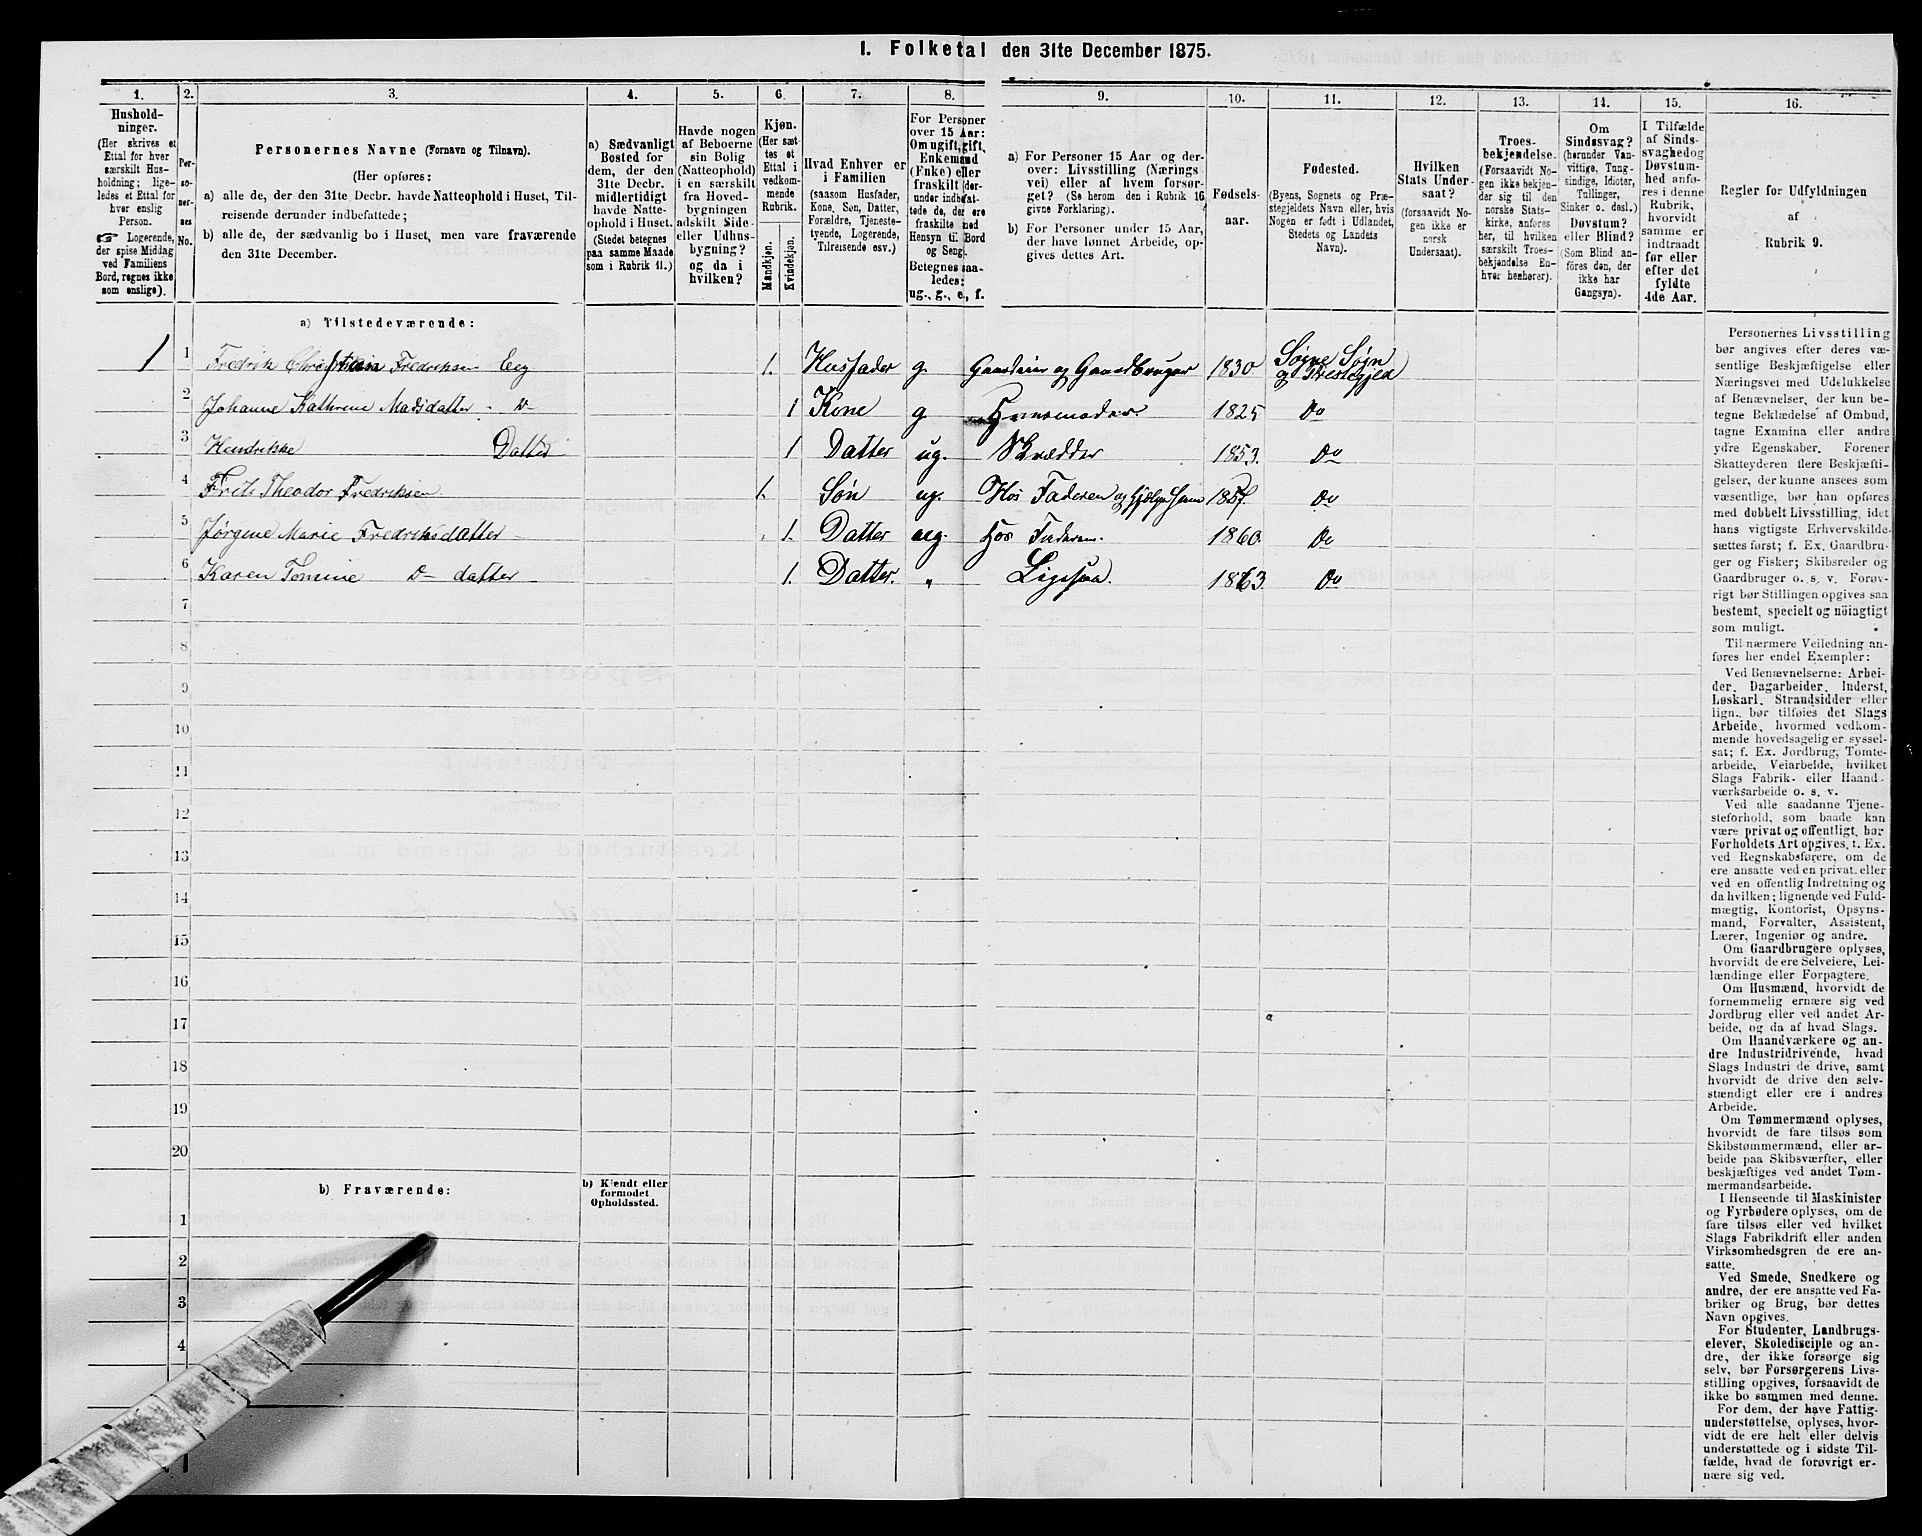 I. Folketal den 31te December 1875.
1. 2. 3. 4. 5. 6. 7. 8. 9. 10. 11. 12. 13. 14. 15. 16.
Hushold-
ninger.
(Her skrives et
Ettal for hver
særskilt Hus-
holdning; lige-
ledes et Ettal for
hver enslig
Person.
☞ Logerende,
der spise Middag
ved Familiens
Bord, regnes ikke
som enslige).
Per-
so-
ner-
nes
No.
Personernes Navne (Fornavn og Tilnavn).
(Her opføres:
a) alle de, der den 31te Decbr. havde Natteophold i Huset, Til-
reisende derunder indbefattede;
b) alle de, der sædvanlig bo i Huset, men vare fraværende
den 31te December.
a) Sædvanligt
Bosted for
dem, der den
31te Decbr.
midlertidigt
havde Natte-
ophold i Huset.
(Stedet betegnes
paa samme Maade
som i Rubrik 11.)
Havde nogen
af Beboerne
sin Bolig
(Natteophold)
i en særskilt
fra Hoved-
bygningen
adskilt Side-
eller Udhus-
bygning?
og da i
hvilken?
Kjøn.
(Her sæt-
tes et
Ettal i
vedkom-
mende
Rubrik.
Mandkjøn.
Kvindekjøn.
Hvad Enhver er
i Familien
(saasom Husfader,
Kone, Søn, Datter,
Forældre, Tjeneste-
tyende, Logerende,
Tilreisende osv.)
For Personer
over 15 Aar:
Om ugift, gift,
Enkemand
(Enke) eller
fraskilt (der-
under indbefat-
tede de, der ere
fraskilte med
Hensyn til Bord
og Seng).
Betegnes saa-
ledes:
ug., g., e., f.
a) For Personer 15 Aar og der-
over: Livsstilling (Nærings-
vei) eller af hvem forsør-
get? (Se herom den i Rubrik 16
givne Forklaring).
b) For Personer under 15 Aar,
der have lønnet Arbeide, op-
gives dettes Art.
Fødsels-
aar.
Fødested.
(Byens, Sognets og Præ-
stegjeldets Navn eller, hvis
Nogen er født i Udlandet,
Stedets og Landets
Navn).
Hvilken
Stats Under-
saat?
(forsaavidt No-
gen ikke er
norsk
Undersaat).
Troes-
bekjendelse.
(Forsaavidt No-
gen ikke bekjen-
der sig til den
norske Stats-
kirke, anføres
her, til hvilken
særskilt Troes-
bekjendelse En-
hver henhører).
Om
Sindssvag?
(herunder Van-
vittige, Tung-
sindige, Idioter,
Tullinger,
Sinker o. desl.)
Døvstum?
eller Blind?
(Som Blind an-
føres den, der
ikke har
Gangsyn).
I Tilfælde
af Sinds-
svaghed og
Døvstum-
hed anfø-
res i denne
Rubrik,
hvorvidt
samme er
indtraadt
før eller
efter det
fyldte
4de Aar.
Regler for Udfyldningen
af
Rubrik 9.
a) Tilstedeværende:
1 1 Fredrik Christian Fredriksen Eeg 1. Husfader g. Gaardeier og Gaardbruger 1830 Søgne Søgn og Prestegjed
2 Johanne Kathrine Madsdatter - D- 1 Kone g Huusmoder. 1825 Do
3 Hendrikke Datter 1 Datter ug. Skrædder 1853. Do
4 Frits Theodor Fredriksen 1. Søn ug. Hos Faderen og Hjelper ham 1857. Do
5 Jørgine Marie Fredriksdatter 1. Datter ug. Hos Faderen. 1860. Do
6 Karen Tomine D- datter 1. Datter. „ Ligesaa. 1863. Do
7
8
9
10
11
12
13
14
15
16
17
18
19
20
b) Fraværende:
b) Kjendt eller
formodet
Opholdssted.
1
2
3
4
Personernes Livsstilling
bør angives efter deres væ-
sentlige Beskjæftigelse eller
Næringsvei med Udelukkelse
af Benævnelser, der kun be-
tegne Beklædelse af Ombud,
tagne Examina eller andre
ydre Egenskaber. Forener
Skatteyderen flere Beskjæfti-
gelser, der kunne ansees som
væsentlige, bør han opføres
med dobbelt Livsstilling, idet
hans vigtigste Erhvervskilde
sættes først; f. Ex. Gaardbru-
ger og Fisker; Skibsreder og
Gaardbruger o. s. v. Forøv-
rigt bør Stillingen opgives saa
bestemt, specielt og nöiagtigt
som muligt.
Til nærmere Veiledning an-
føres her endel Exempler:
Ved Benævnelserne: Arbei-
der, Dagarbeider, Inderst,
Løskarl, Strandsidder eller
lign., bør tilføies det Slags
Arbeide, hvormed vedkom-
mende hovedsagelig er syssel-
sat; f. Ex. Jordbrug, Tomte-
arbeide, Veiarbeide, hvilket
Slags Fabrik- eller Haand-
værksarbeide o. s. v.
Ved alle saadanne Tjene-
steforhold, som baade kan
være privat og offentligt, bør
Forholdets Art opgives, t. Ex.
ved Regnskabsførere, om de
ere ansatte ved en privat eller
ved en offentlig Indretning og
da hvilken; lignende ved Fuld-
mægtig, Kontorist, Opsyns-
mand, Forvalter, Assistent,
Lærer, Ingeniør og andre.
Om Gaardbrugere oplyses,
hvorvidt de ere Selveiere, Lei-
lændinge eller Forpagtere.
Om Husmænd, hvorvidt de
fornemmelig ernære sig ved
Jordbrug eller ved andet Ar-
beide, og da af hvad Slags.
Om Haandværkere og an-
dre Industridrivende, hvad
Slags Industri de drive, samt
hvorvidt de drive den selv-
stændigt eller ere i andres
Arbeide.
Om Tømmermænd oplyses,
hvorvidt de fare tilsøs som
Skibstømmermænd, eller ar-
beide paa Skibsværfter, eller
beskjæftiges ved andet Tøm-
mermandsarbeide.
I Henseende til Maskinister
og Fyrbødere oplyses, om de
fare tilsøs eller ved hvilket
Slags Fabrikdrift eller anden
Virksomhedsgren de ere an-
satte.
Ved Smede, Snedkere og
andre, der ere ansatte ved Fa-
briker og Brug, bør dettes
Navn opgives.
For Studenter, Landbrugs-
elever, Skoledisciple og an-
dre, der ikke forsørge sig
selv, bør Forsørgerens Livs-
stilling opgives, forsaavidt de
ikke bo sammen med denne.
For dem, der have Fattig-
understøttelse, oplyses, hvor-
vidt de ere helt eller delvis
understøttede og i sidste Til-
fælde, hvad de forøvrigt er-
nære sig ved.